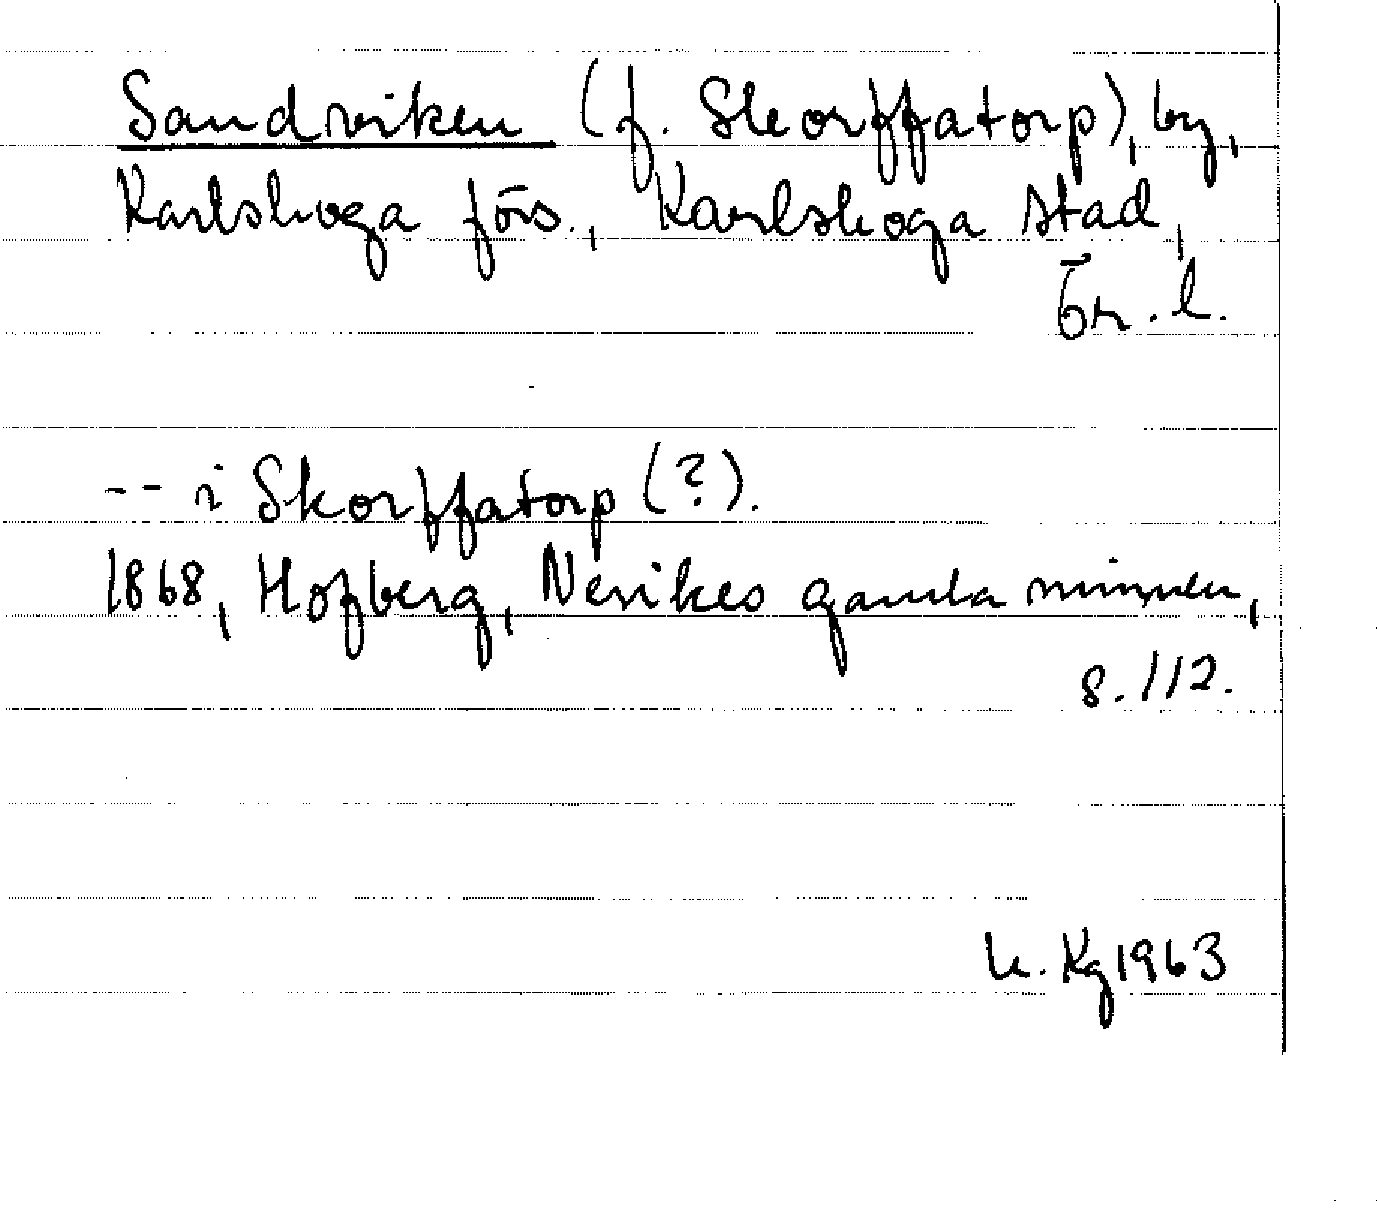 Sandviken (f. Skorffatorp), by,
Karlskoga förs., Karlskoga stad,
Ör. l.
-- i Skorffatorp (?).
1868, Hofberg, Nerikes gamla minnen,
s. 112.
U. Kg 1963